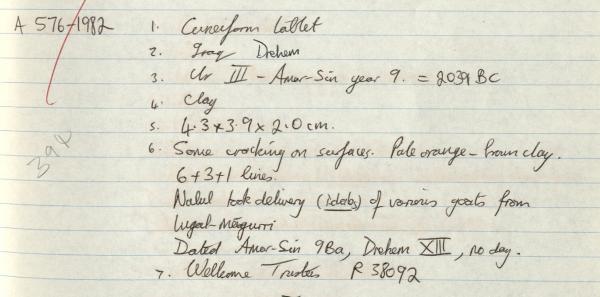 A 576-1982 1. Cuneiform tablet
2. Iraq Drehem
3. Ur III - Amar-Sin year 9. = 2039 BC
4. Clay
5. 4.3 x 3.9 x 2.0 cm.
6. Some cracking on surfaces. Pale orange-brown clay.
6+3+1 lines.
Nalul took delivery of various goats from
Lugal-magurri
Dated Amar-Sin 9Ba, Drehem XIII, no day.
7. Wellcome Trustees R 38092
394